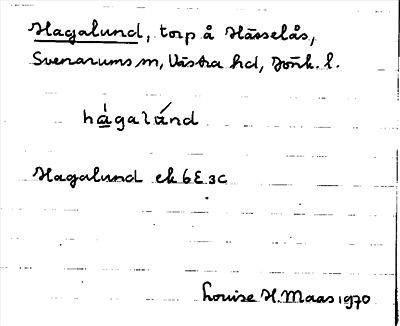 Hagalund, torp å Hässelås,
Svenarums sn, Västra hd, Jönk. l.
hàgalánd
Hagalund ek 6E 3c
Louise H. Maas 1970